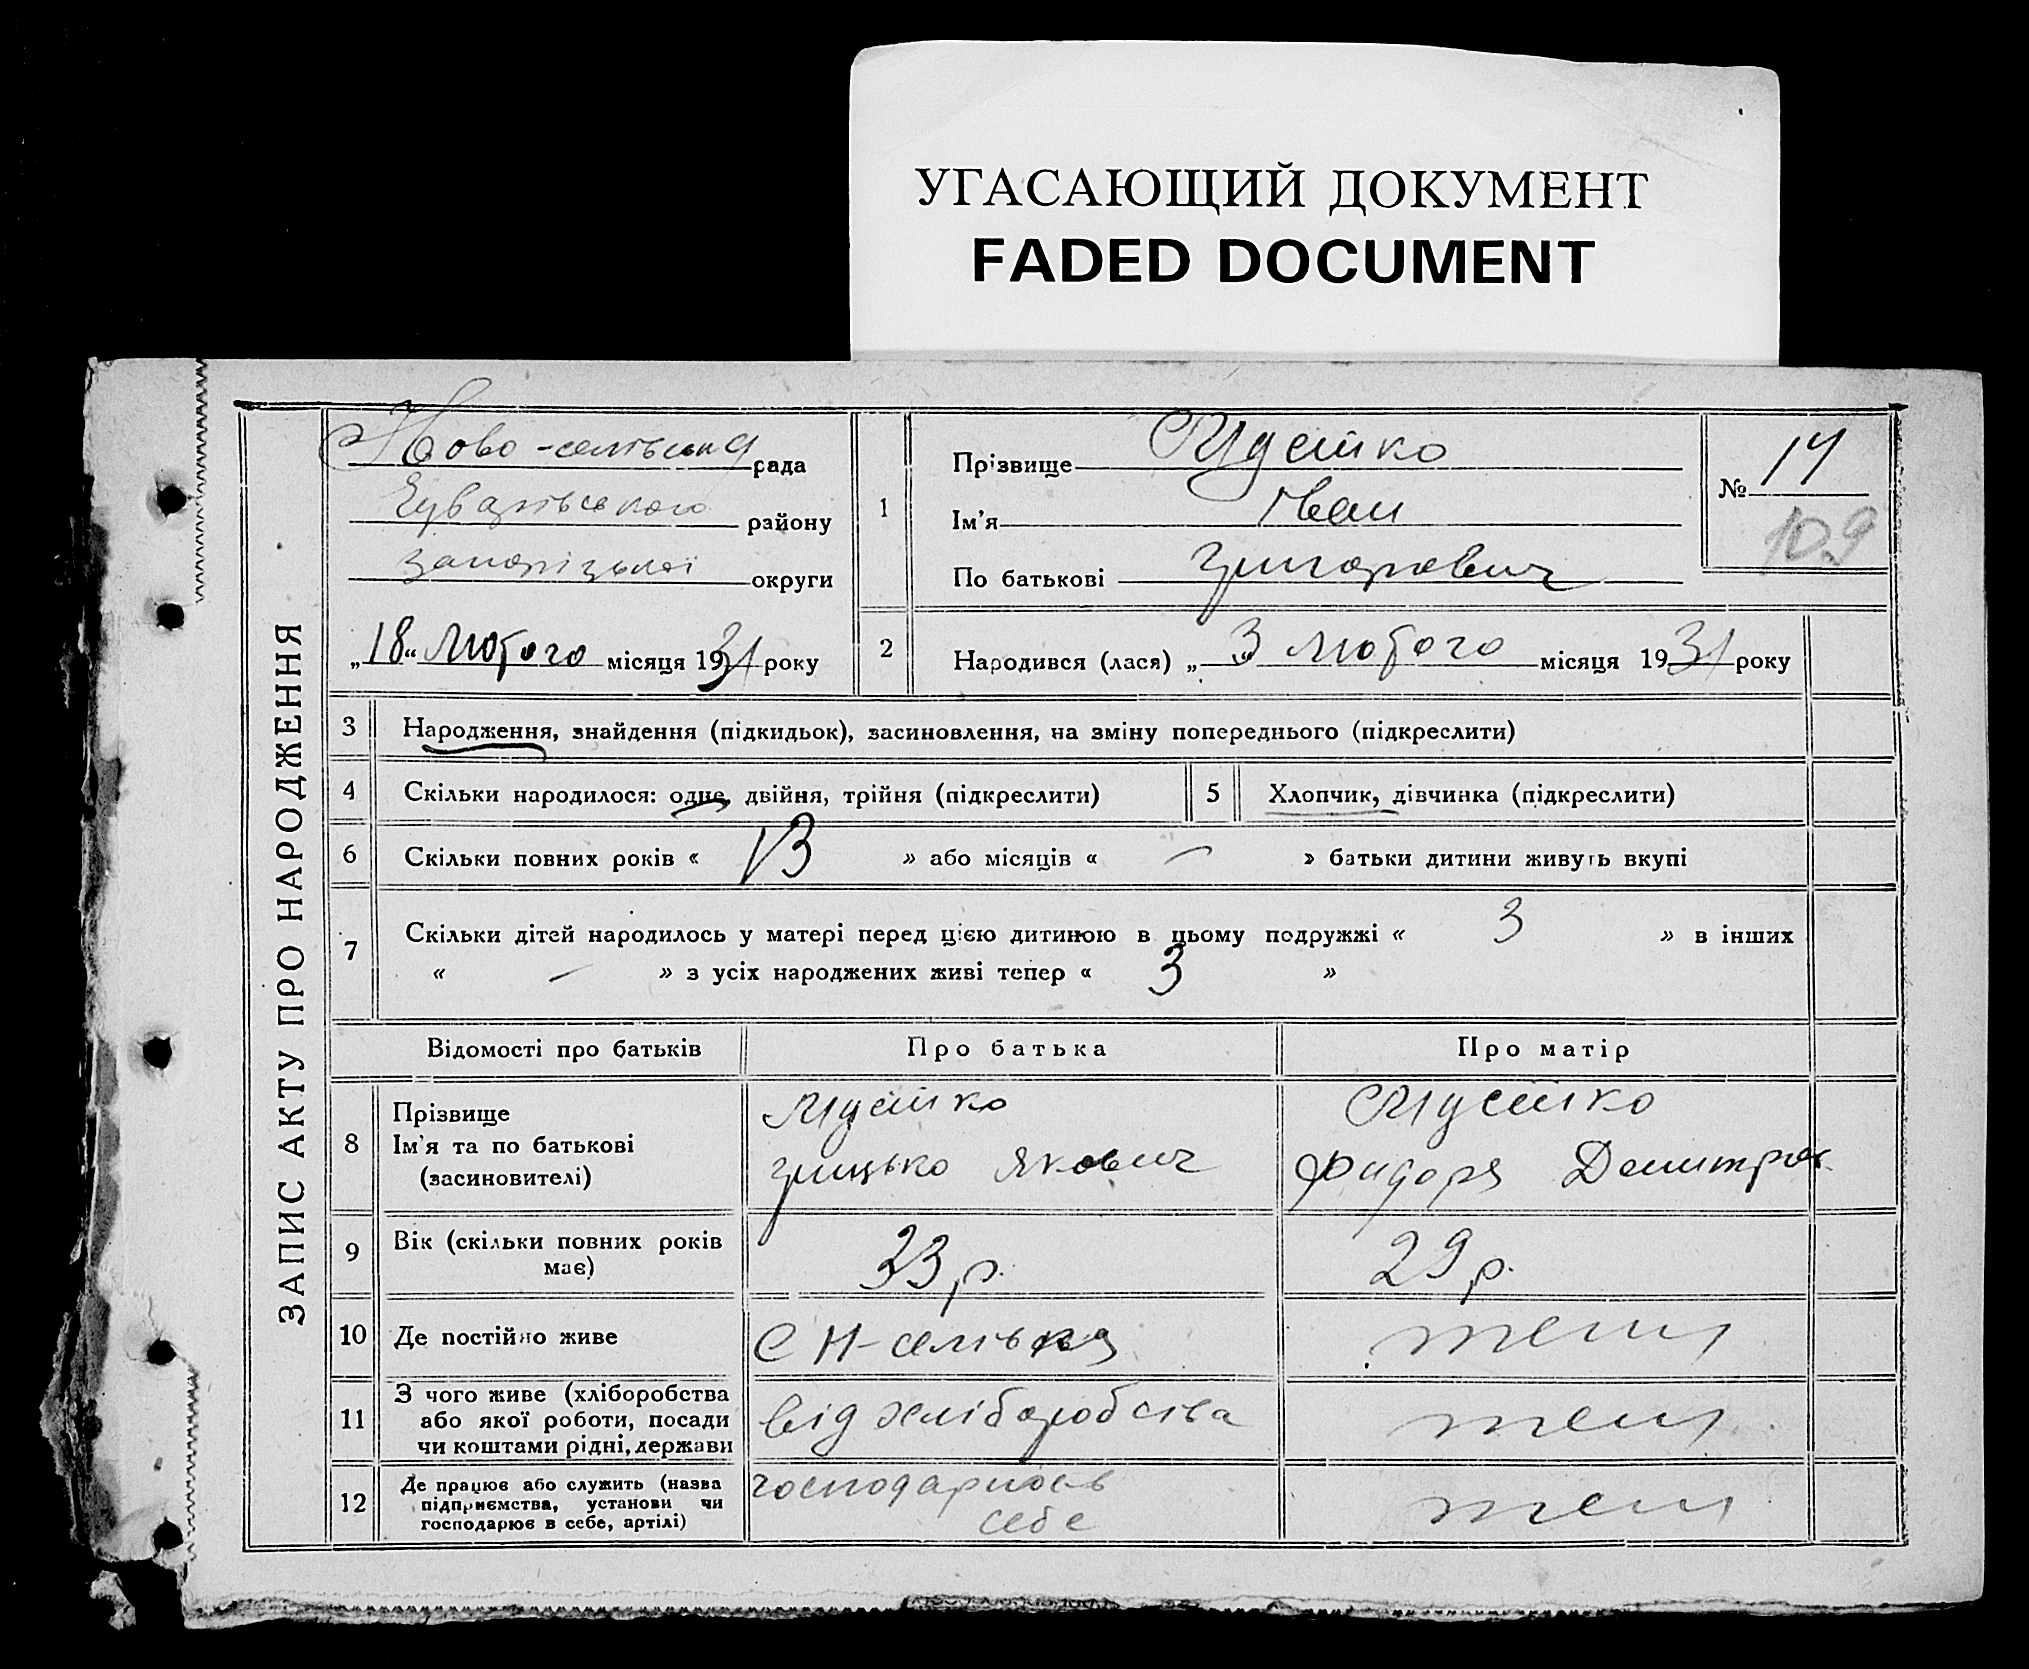 УГАСАЮЩИЙ ДОКУМЕНТ
FADED DOCUMENT
ЗАПИС АКТУ ПРО НАРОДЖЕННЯ
Ново-селівська рада
району
запорізької округи
„18“ Лютого місяця 1931 року
1
Прізвище
Ім'я Іван
По батькові Григорович
№ 14
109
2
Народився (лася) „3“ Лютого місяця 1931 року
3 Народження, знайдення (підкидьок), засиновлення, на зміну попереднього (підкреслити)
4 Скільки народилося: одне, двійня, трійня (підкреслити)
5 Хлопчик, дівчинка (підкреслити)
6 Скільки повних років « 13 » або місяців « — » батьки дитини живуть вкупі
7 Скільки дітей народилось у матері перед цією дитиною в цьому подружжі « 3 » в інших
« — » з усіх народжених живі тепер « 3 »
Відомості про батьків Про батька Про матір
8 Прізвище
Ім'я та по батькові
(засиновителі)
грицько Якович
Фидора Демитров.
9 Вік (скільки повних років має) 33 р. 29 р.
10 Де постійно живе С Н-селівка теш
11 З чого живе (хліборобства
або якої роботи, посади
чи коштами рідні, держави
від хліборобства
теш
12 Де працює або служить (назва
підприємства, установи чи
господарює в себе, артілі)
себе
теш